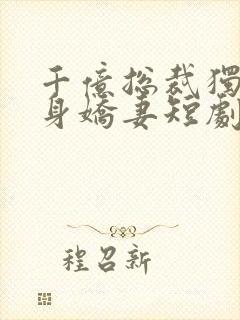 千億總裁獨
身嬌妻短劇
程召新